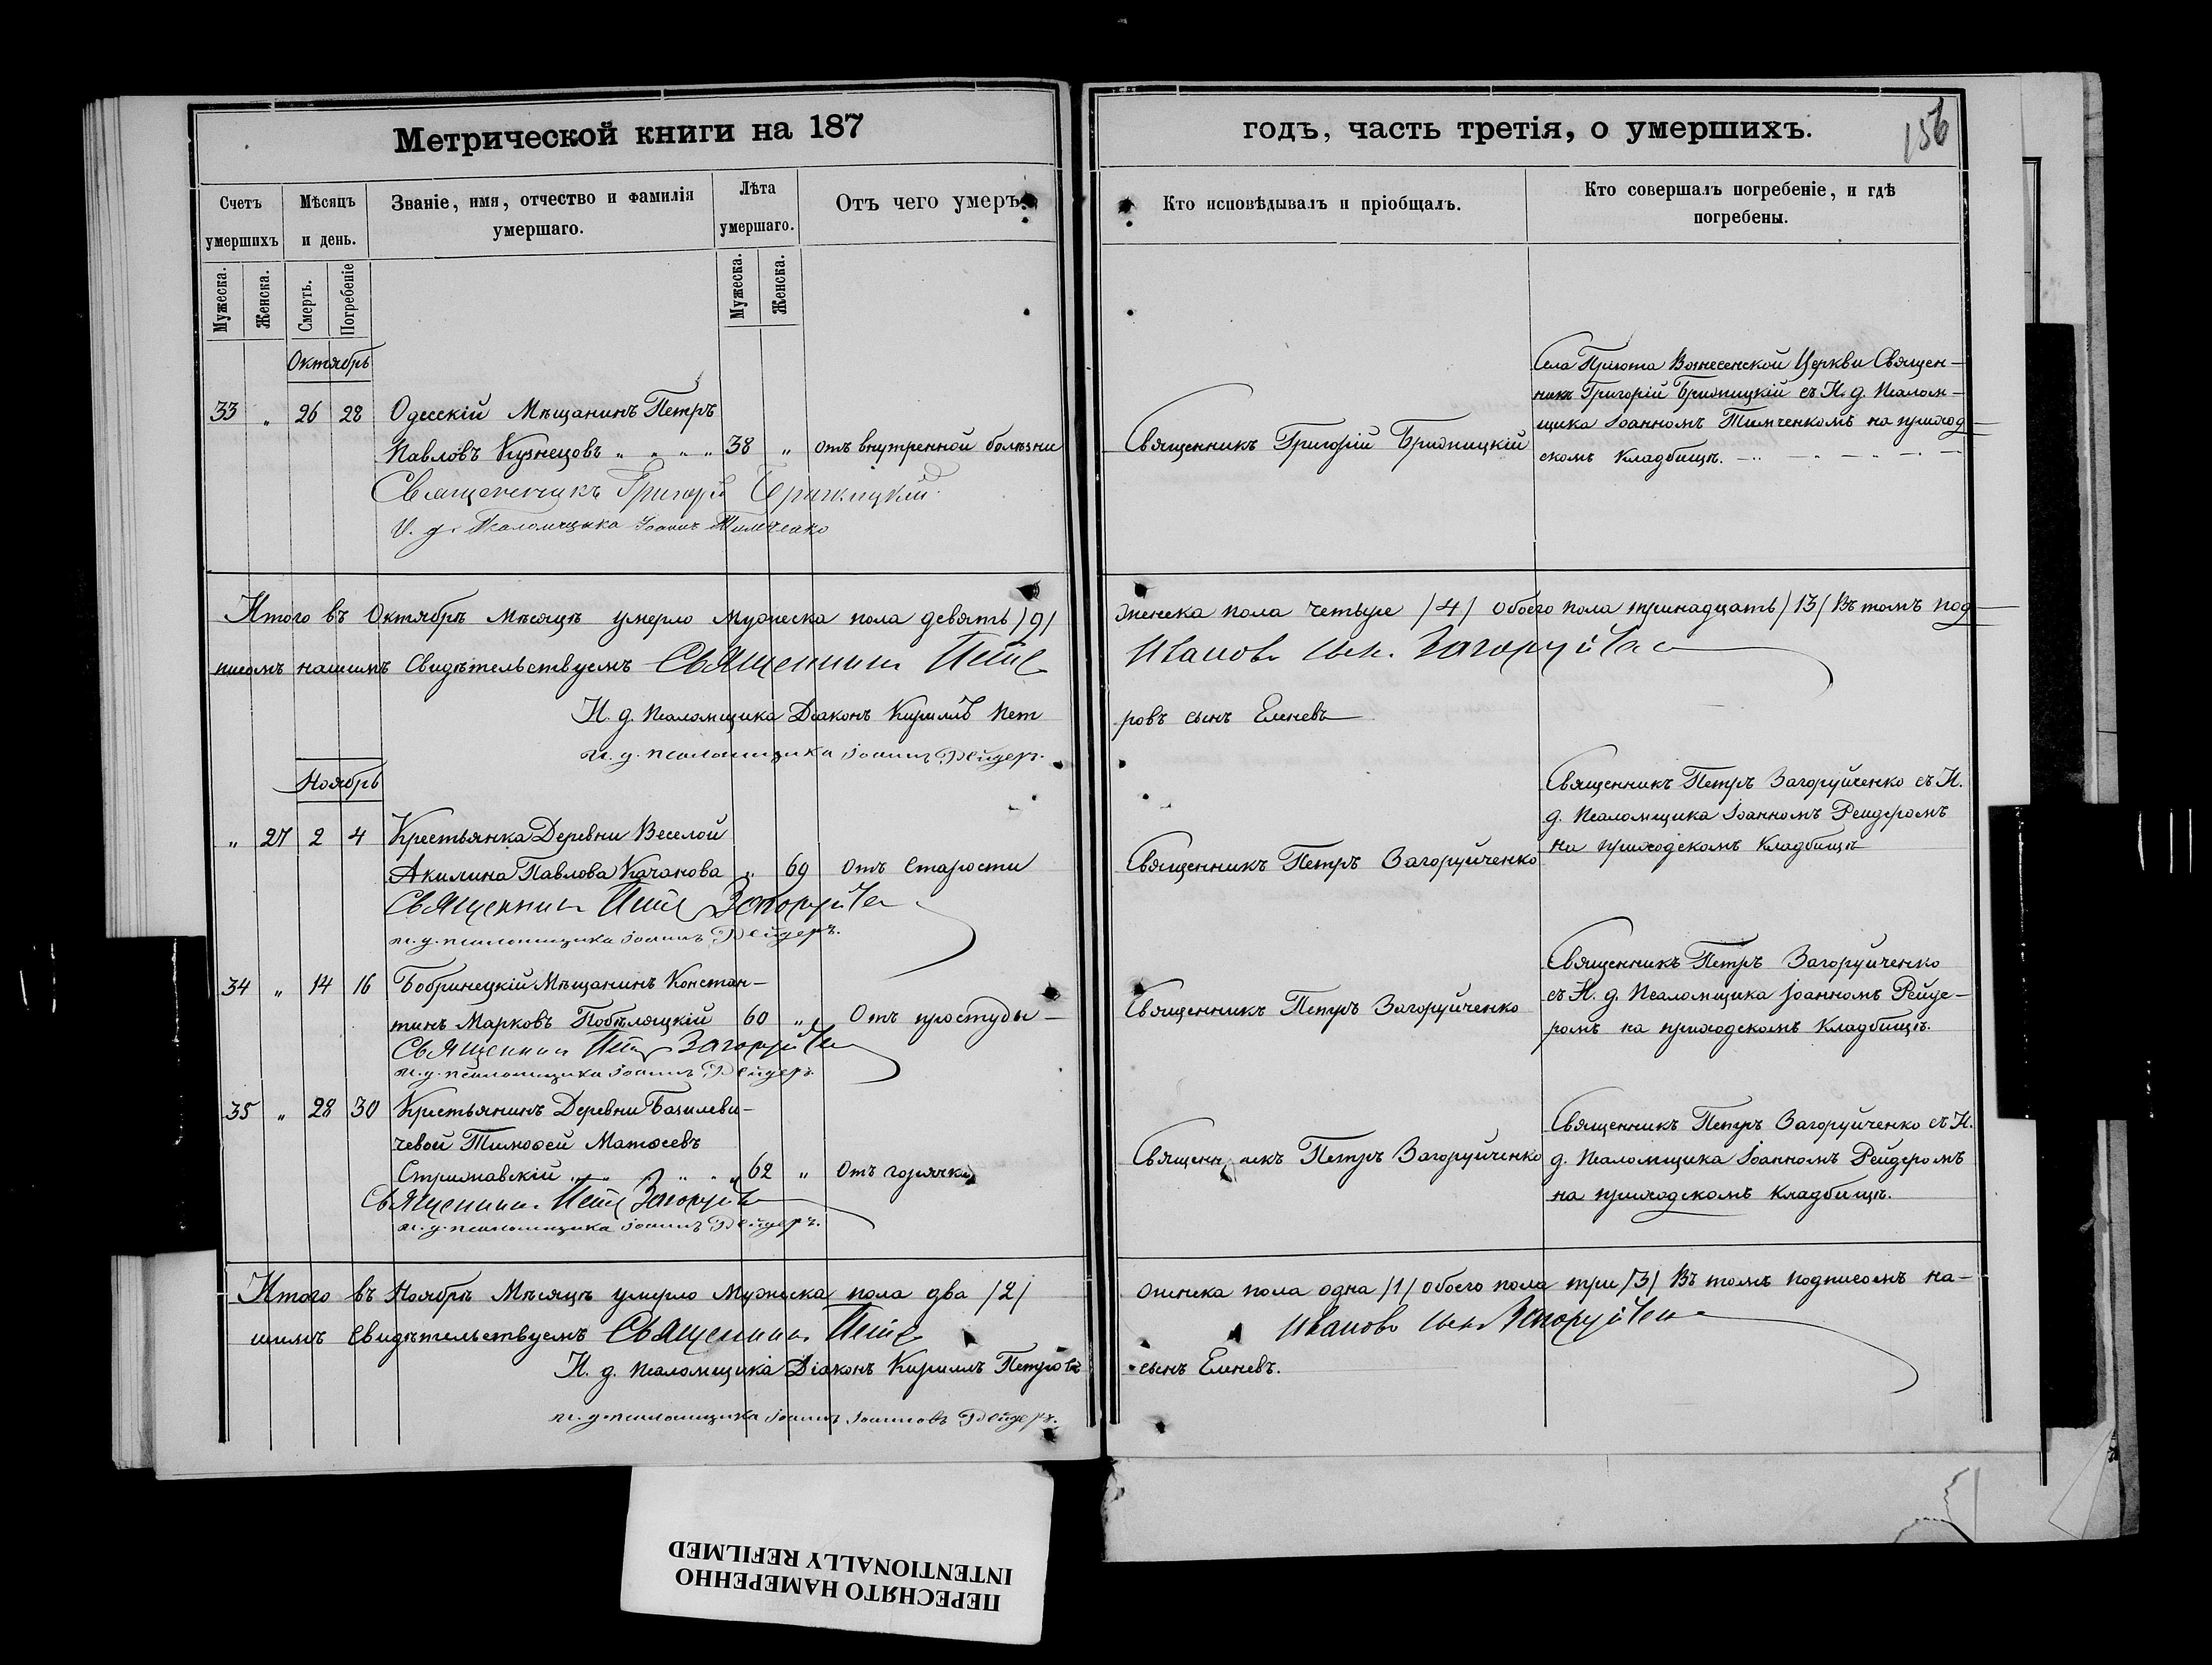 Метрической книги на 187
годъ, часть третія, о умершихъ.
156
Счетъ умершихъ
Мѣсяцъ и день.
Званіе, имя, отчество и фамилія умершаго.
Лѣта умершаго.
Отъ чего умеръ.
Кто исповѣдывалъ и пріобщалъ.
Кто совершалъ погребеніе, и гдѣ погребены.
Мужеска.
Женска.
Смерть.
Погребеніе
Мужеска.
Женска.
Октябрь
33 " 26 28 Одесскій Мѣщанинъ Петръ
Павловъ Кузнецовъ " " " " 38 " отъ внутренной болѣзни
Священникъ Григорій Бржицкій
Села Пріюта Вознесенской Церкви Священ-
никъ Григорій Бржицкій съ И. д. Псалом-
щика Іоанномъ Тимченкомъ на приход-
скомъ кладбищѣ.
Священникъ Григорій Бржицкій
И. д. Псаломщика Іоаннъ Тимченко
Итого въ Октябрѣ Мѣсяцѣ умерло мужеска пола девять /9/
женска пола четыре /4/ обоего пола тринадцать /13/ Въ томъ под-
писомъ нашимъ свидѣтельствуемъ Священникъ Петръ
Ивановъ сынъ Загоруйченко
И. д. псаломщика Діаконъ Кириллъ Пет
ровъ сынъ Еленевъ
и. д. псаломщика Іоаннъ Рейдеръ.
Ноябрь
" 27 2 4 Крестьянка Деревни Веселой
Акилина Павлова Качанова " 69 отъ старости
Священникъ Петръ Загоруйченко
Священникъ Петръ Загоруйченко съ И.
д. Псаломщика Іоанномъ Рейдеромъ
на приходскомъ кладбищѣ
Священникъ Петръ Загоруйченко
и. д. псаломщика Іоаннъ Рейдеръ.
34 " 14 16 Бобринецкій Мѣщанинъ Констан-
тинъ Марковъ Побѣляцкій 60 " Отъ простуды
Священникъ Петръ Загоруйченко
Священникъ Петръ Загоруйченко
съ И. д. Псаломщика Іоанномъ Рейде-
ромъ на приходскомъ кладбищѣ.
Священникъ Петръ Загоруйченко
и. д. псаломщика Іоаннъ Рейдеръ.
35 " 28 30 Крестьянинъ Деревни Базилеви-
чевой Тимоѳей Матѳеевъ
Стрижавскій " " " " " 62 " Отъ горячки
Священникъ Петръ Загоруйченко
Священникъ Петръ Загоруйченко съ И.
д. Псаломщика Іоанномъ Рейдеромъ
на приходскомъ кладбищѣ.
Священникъ Петръ Загоруйченко
и. д. псаломщика Іоаннъ Рейдеръ.
Итого въ Ноябрѣ Мѣсяцѣ умерло Мужеска пола два /2/
женска пола одна /1/ обоего пола три /3/ Въ томъ подписомъ на-
шимъ свидѣтельствуемъ Священникъ Петръ
Ивановъ сынъ Загоруйченко
И. д. псаломщика Діаконъ Кириллъ Петровъ
сынъ Еленевъ.
и. д. псаломщика Іоаннъ Іоанновъ Рейдеръ.
ПЕРЕСНЯТО НАМЕРЕННО
INTENTIONALLY REFILMED